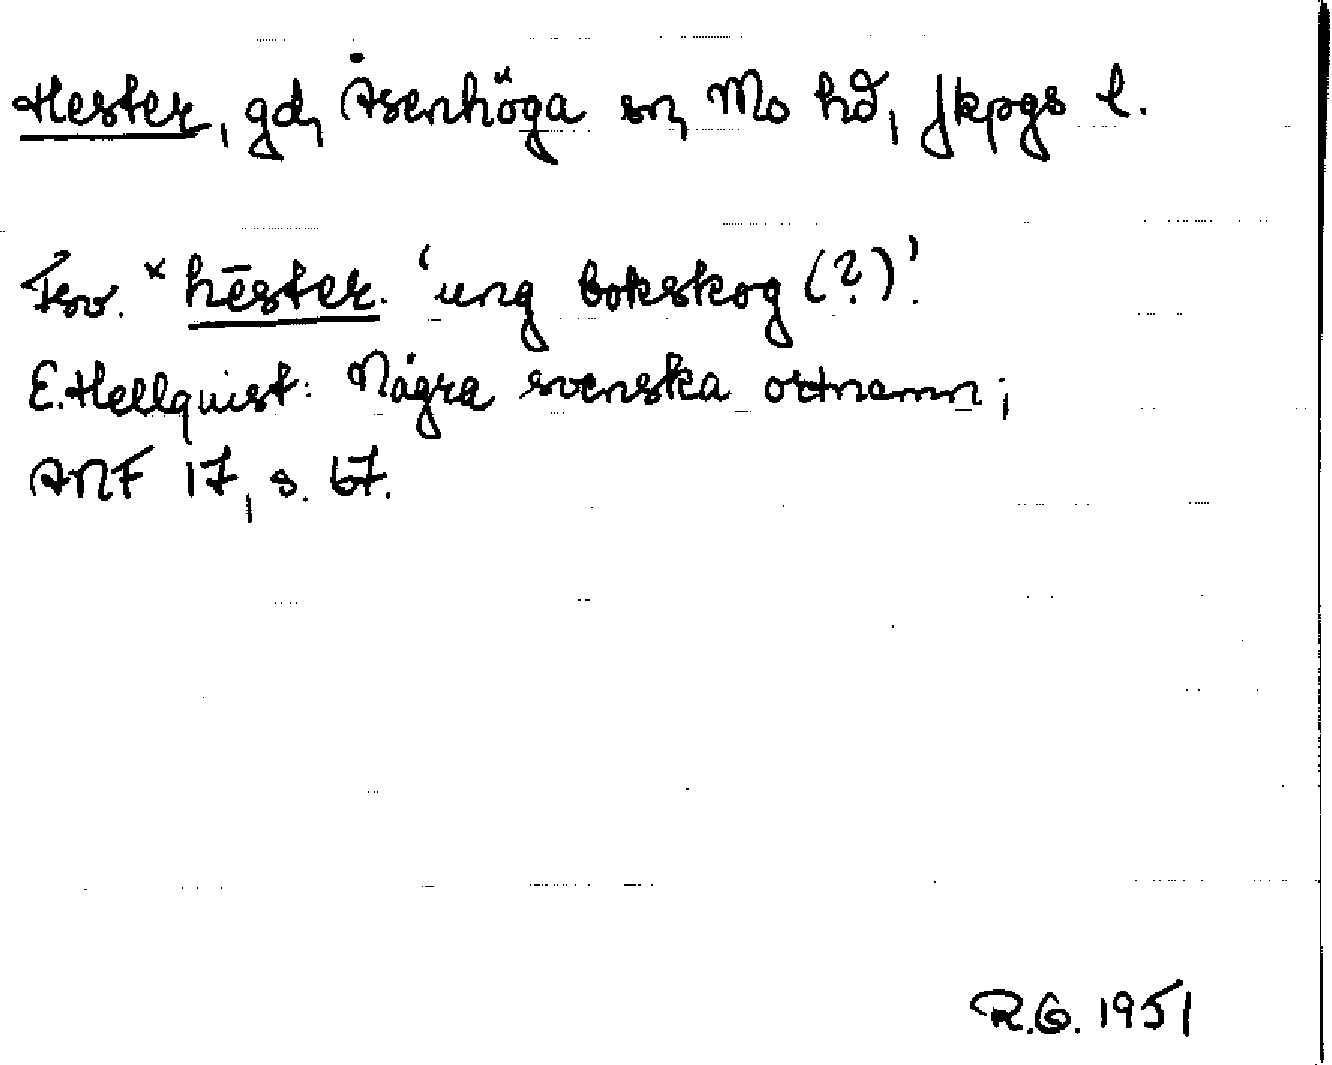 Hester, gd, Åsenhöga sn, Mo hd, Jkpgs l.
Fsv. *hēster. 'ung bokskog (?)'.
E. Hellquist: Några svenska ortnamn;
ANF 17, s. 67.
R.G. 1951